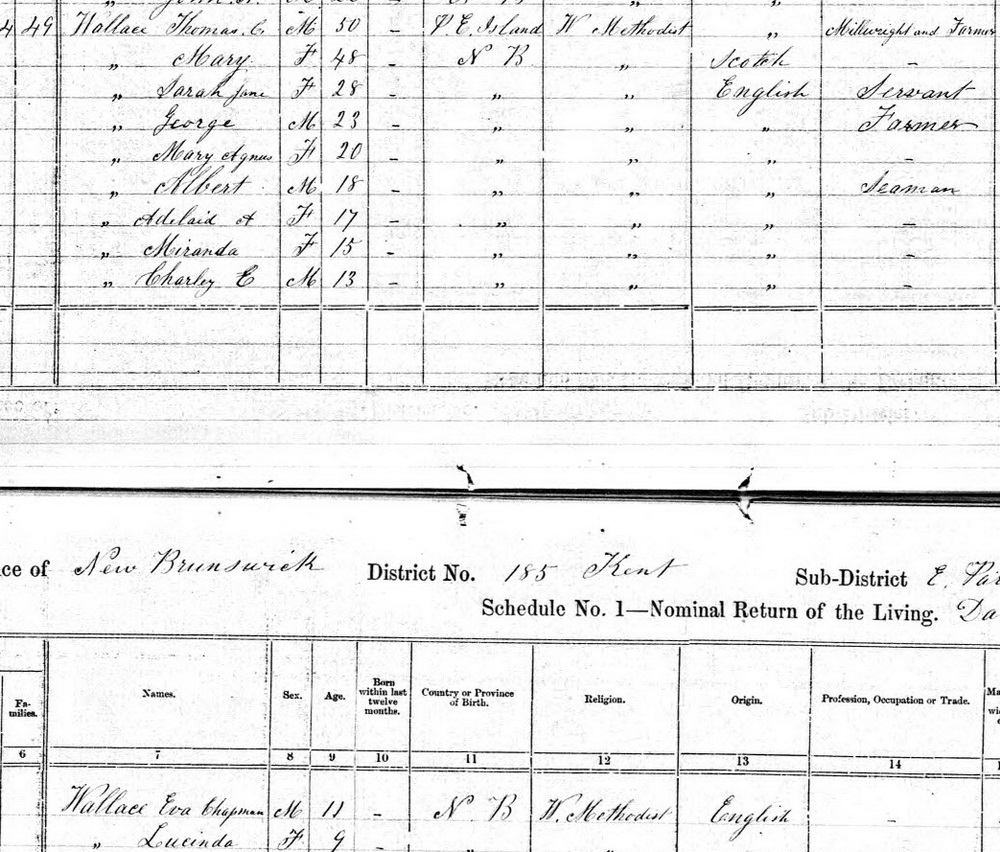 4 49 Wallace Thomas. C. M 50 - P E. Island W Methodist „ Millwright and Farmer
„ Mary F 48 - N B „ Scotch -
„ Sarah Jane F 28 - „ „ English Servant
„ George M 23 - „ „ „ Farmer
„ Mary Agnus F 20 - „ „ „ -
„ Albert M 18 - „ „ „ Seaman
„ Adelaid A F 17 - „ „ „ -
„ Miranda F 15 - „ „ „ -
„ Charley E M 13 - „ „ „ -
ce of New Brunswick District No. 185 Kent Sub-District E.
Schedule No. 1—Nominal Return of the Living.
Fa-milies. Names. Sex. Age. Born within last twelve months. Country or Province of Birth. Religion. Origin. Profession, Occupation or Trade.
6 7 8 9 10 11 12 13 14
Wallace Eva Chapman M 11 - N B W. Methodist English -
„ Lucinda F 9